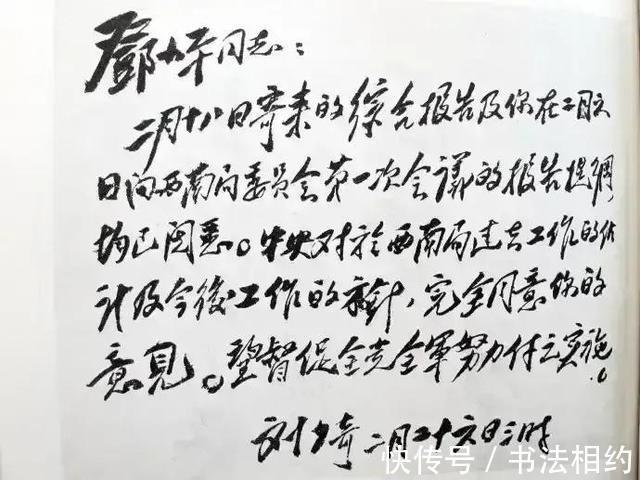 鄧小平同志：
二月十八日寄来的綜合报告及你在二月六
日向西南局委員会第一次会議的报告提綱
均已閱悉。中央对於西南局过去工作的估
計及今後工作的方針，完全同意你的
意見。望督促全党全軍努力付之实施。
刘少奇 二月二十六日三时
快传号 / 书法相约